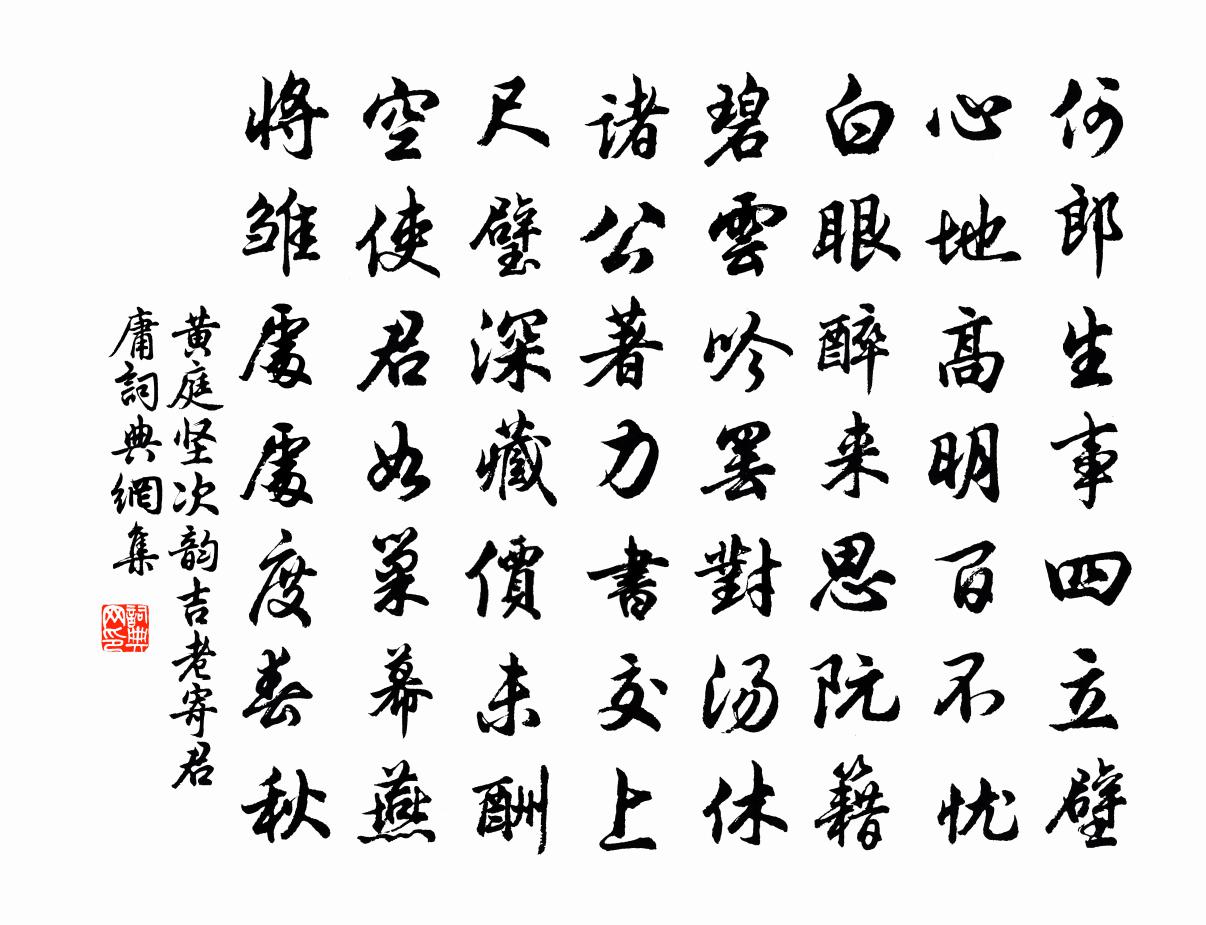 何郎生事四立壁
心地高明百不忧
白眼醉来思阮籍
碧雲吟罢對汤休
诸公著力書交上
尺璧深藏價未酬
空使君如巢幕燕
将雏處處度春秋
黄庭坚次韵吉老寄君
庸詞典網集
詞典
网印